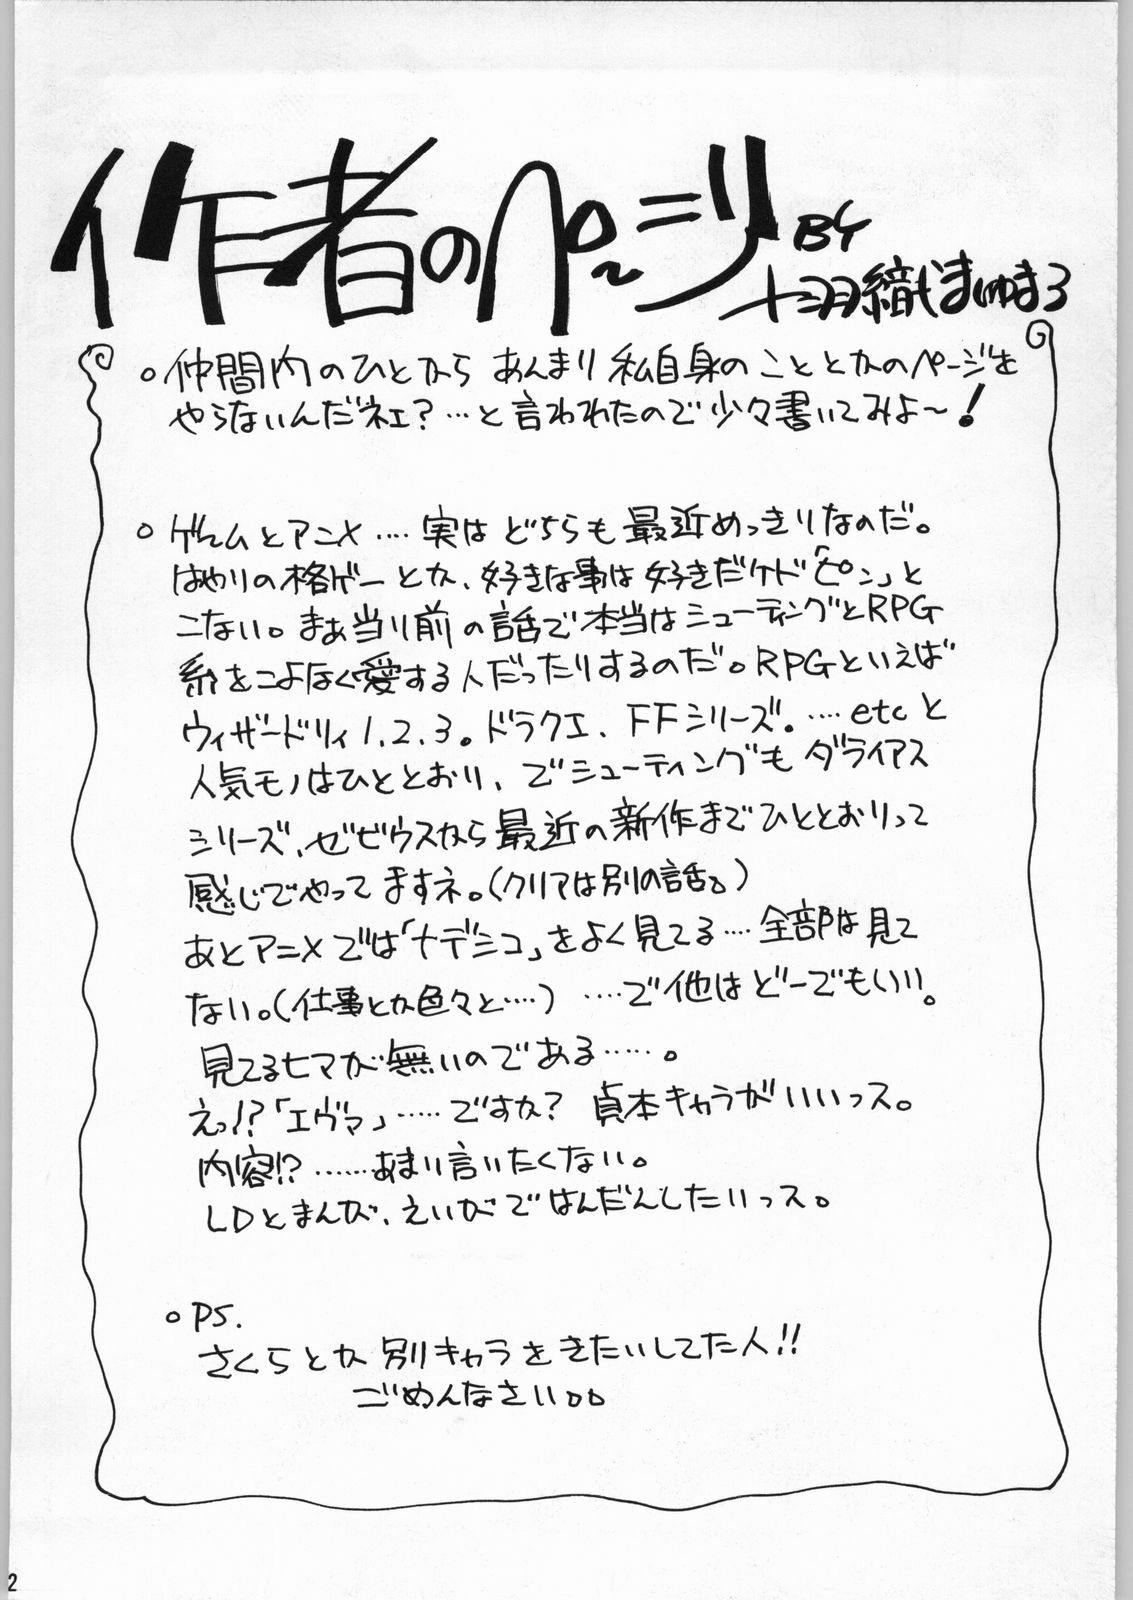 作者のページ BY
十羽織ましゅまろ
○ 仲間内のひとから あんまり 私自身の こととかのページを
やらないんだネェ?…と言われたので少々書いてみよ〜!
○ ゲームとアニメ‥‥実はどちらも最近めっきりなのだ。
はやりの格ゲーとか、好きな事は好きだケド「ピン」と
こない。まぁ当り前の話で本当はシューティングとRPG
系をこよなく愛する人だったりするのだ。RPGといえば
ウィザードリィ1.2.3。ドラクエ、FFシリーズ。‥‥etcと
人気モノはひととおり、でシューティングもダライアス
シリーズ、ゼビウスなら最近の新作までひととおりって
感じでやってますネ。(クリアは別の話。)
あとアニメでは「ナデシコ」をよく見てる‥‥全部は見て
ない。(仕事とか色々と‥‥) ‥‥で他はどーでもいい。
見てるヒマが無いのである‥‥‥。
えっ!?「エヴァ」‥‥‥ですか? 貞本キャラがいいっス。
内容!? ‥‥‥あまり言いたくない。
LDとまんが、えいがではんだんしたいっス。
○ PS.
さくらとか 別キャラをきたいしてた人!!
ごめんなさい。。
2